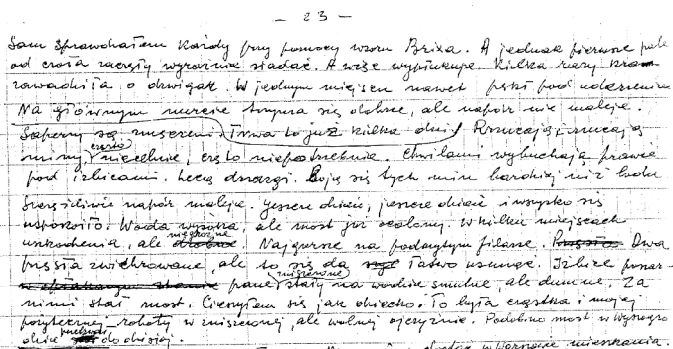 - 23 -
Sam sprawdzałem każdy przy pomocy wzoru Brixa. A jednak pierwsze pale
od czoła zaczęły wyraźnie siadać. A wieża kilka razy
zawadziła o dźwigar. W jednym miejscu nawet pękł pod uderzeniem
Na głównym nurcie trzyma się dobrze, ale napór nie maleje.
Saperzy są zmęczeni. Trwa to już kilka dni. Rzucają, rzucają
miny często niecelnie, często niepotrzebnie. Chwilami wybuchają prawie
pod izbicami. Lecą drzazgi. Boję się tych min bardziej niż lodu
Szczęśliwie napór maleje. Jeszcze dzień, jeszcze dzień i wszystko się
uspokoiło. Woda wysoka, ale most już ocalony. W kilku miejscach
uszkodzenia, ale niegroźne. Najgorsze na podmytym filarze. Dwa
przęsła zwichrowane, ale to się da łatwo usunąć. Izbice
zniszczone stały na wodzie smutne, ale dumne. Za
nimi stał most. Cieszyłem się jak dziecko. To była cząstka i mojej
pożytecznej roboty w zniszczonej, ale wolnej ojczyźnie. Podobno most w
do dzisiaj.
w Warszawie mieszkania.